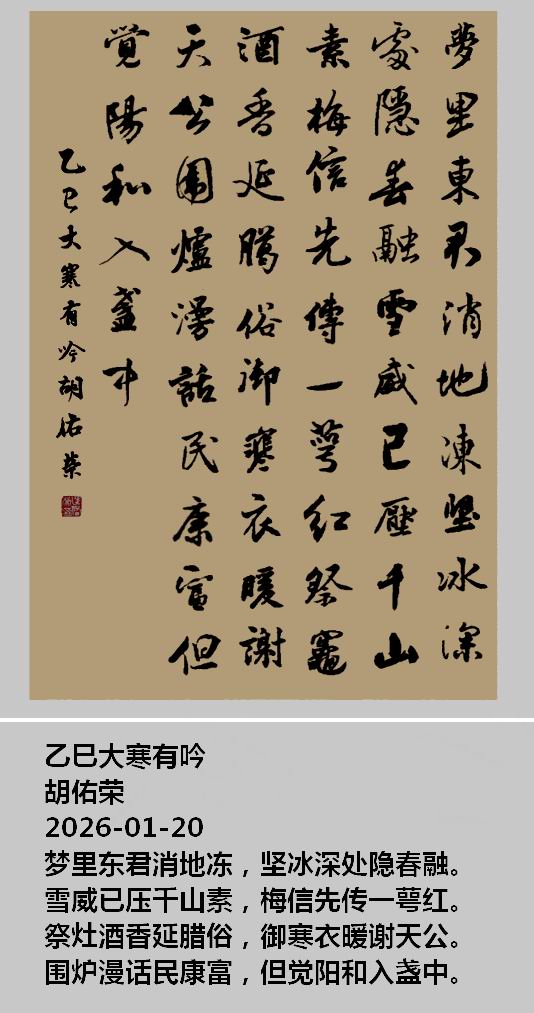 夢里東君消地凍堅冰深
處隱春融雪威已壓千山
素梅信先傳一萼紅祭竈
酒香延臘俗御寒衣暖謝
天公圍爐漫話民康富但
覺陽和入盞中
乙巳大寒有吟胡佑榮
乙巳大寒有吟
胡佑荣
2026-01-20
梦里东君消地冻，坚冰深处隐春融。
雪威已压千山素，梅信先传一萼红。
祭灶酒香延腊俗，御寒衣暖谢天公。
围炉漫话民康富，但觉阳和入盏中。